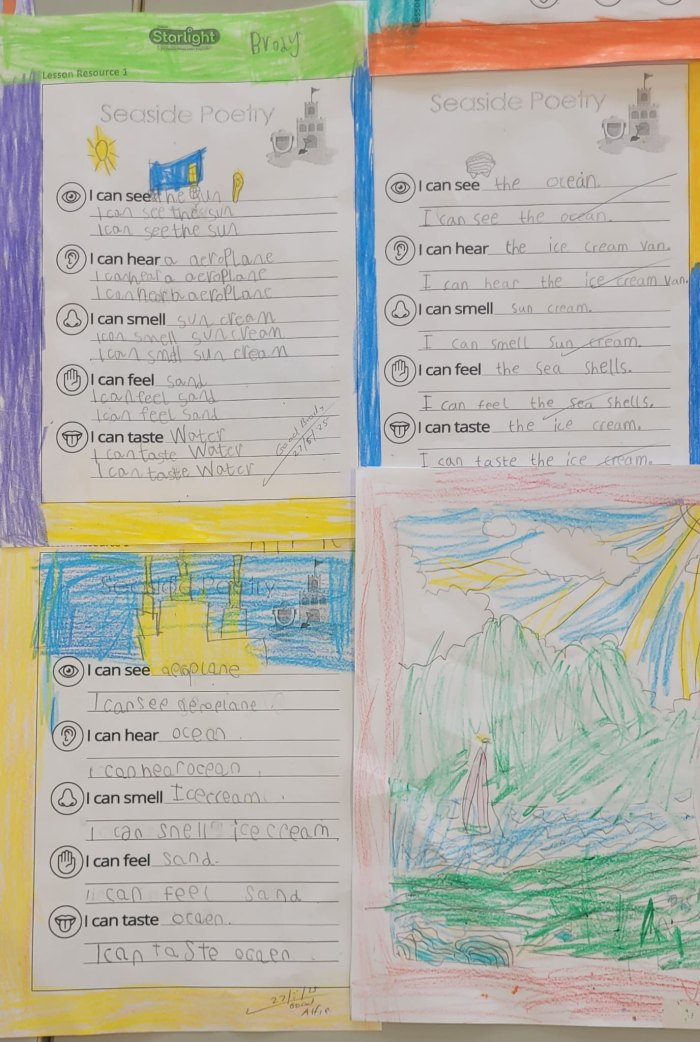 Starlight
Brody
Lesson Resource 1
Seaside Poetry
I can see the sun
I can see the sun
I can see the sun
I can hear a aeroplane
I can hear a aeroplane
I can hear a aeroplane
I can smell sun cream
I can smell sun cream
I can smell sun cream
I can feel sand
I can feel sand
I can feel sand
I can taste Water
I can taste Water
I can taste Water
Good Brody
Seaside Poetry
I can see the ocean.
I can see the ocean.
I can hear the ice cream van.
I can hear the ice cream van.
I can smell sun cream.
I can smell sun cream.
I can feel the sea shells.
I can feel the sea shells.
I can taste the ice cream.
I can taste the ice cream.
Seaside Poetry
I can see aeroplane
I can see aeroplane.
I can hear ocean.
I can hear ocean.
I can smell Icecream.
I can snell icecream
I can feel sand.
I can feel sand
I can taste ocaen.
I can taste ocaen
Good
Alfie